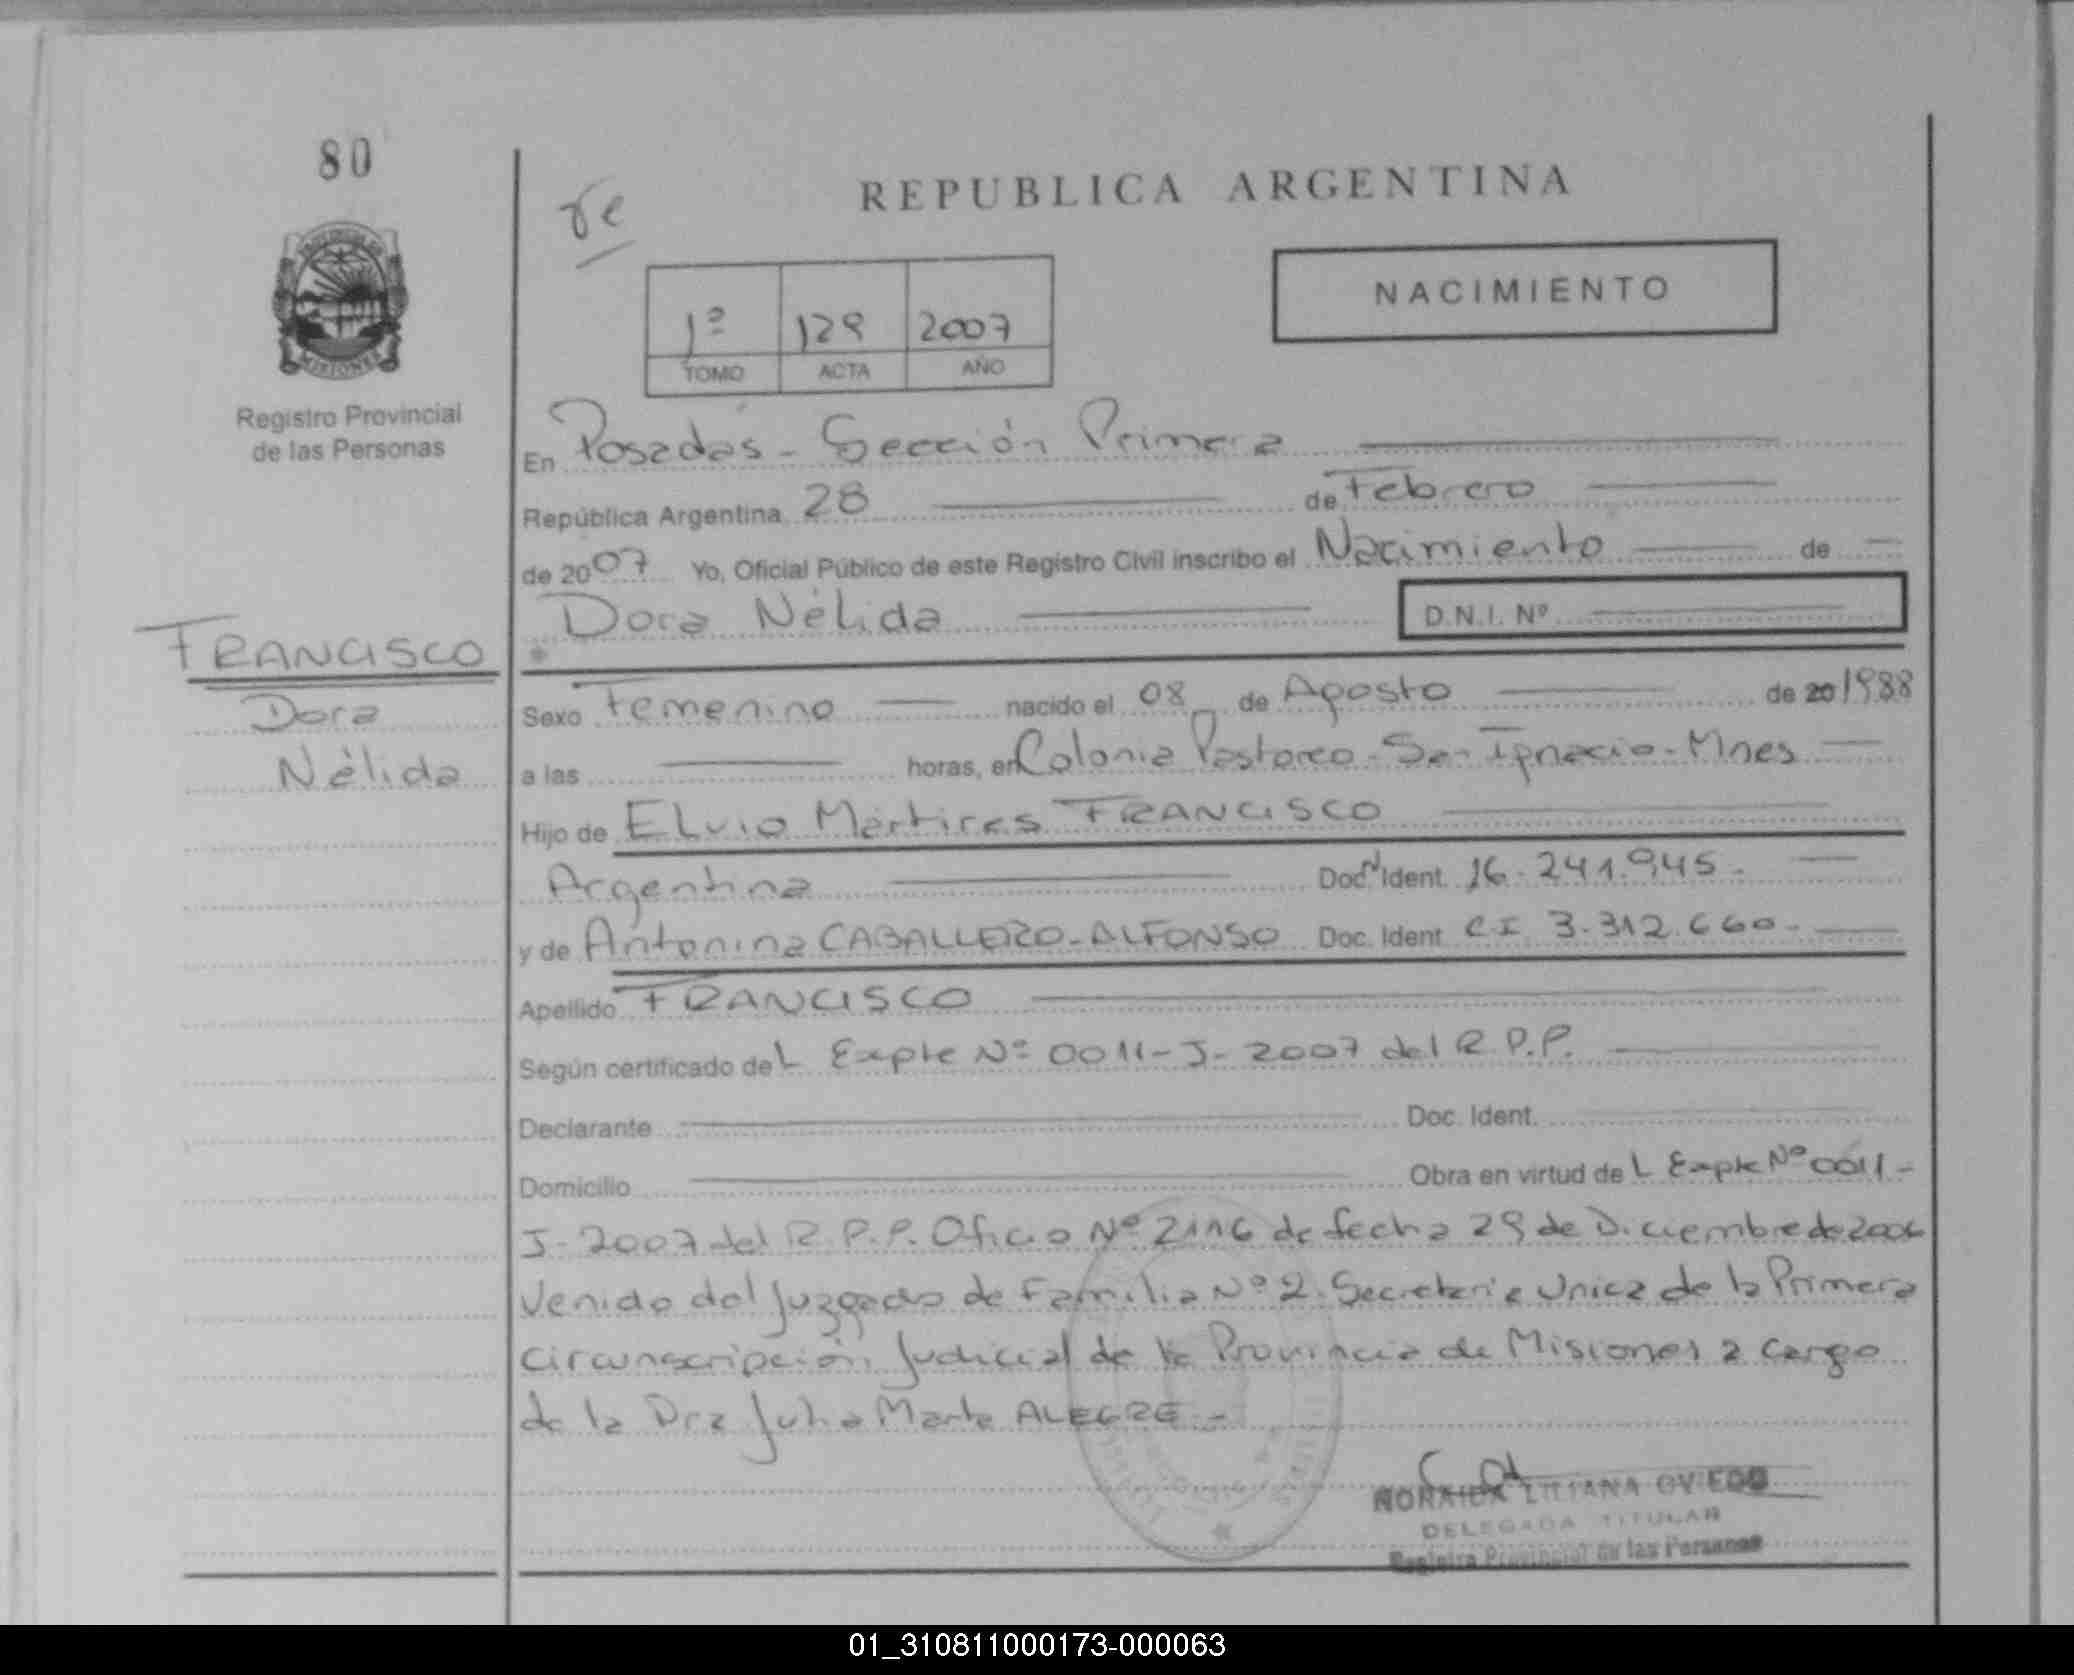 80
REPUBLICA ARGENTINA
NACIMIENTO
1º 129 2007
TOMO ACTA AÑO
MISIONES
Registro Provincial
de las Personas
En Posadas - Sección Primera
República Argentina 28 de Febrero
de 2007 Yo, Oficial Público de este Registro Civil inscribo el Nacimiento de
Dora Nélida D.N.I. Nº
FRANCISCO
Dora
Nélida
Sexo Femenino nacido el 08 de Agosto de 20 1988
a las horas, en Colonia Pastoreo - San Ignacio - Mnes
Hijo de Elvio Mártires FRANCISCO
Argentina Doc. Ident. 16.241.945.-
y de Antonina CABALLERO-ALFONSO Doc. Ident. CI 3.312.660.-
Apellido FRANCISCO
Según certificado del Expte Nº 0011-J-2007 del R.P.P.
Declarante Doc. Ident.
Domicilio Obra en virtud del Expte Nº 0011-
J-2007 del R.P.P. Oficio Nº 2116 de fecha 29 de Diciembre de 2006
Venido del Juzgado de Familia Nº 2 Secretaria Unica de la Primera
Circunscripción Judicial de la Provincia de Misiones a cargo
de la Dra Julia Marta ALEGRE.-
LILIANA OVIEDO
DELEGADA TITULAR
Registro Provincial de las Personas
01_310811000173-000063